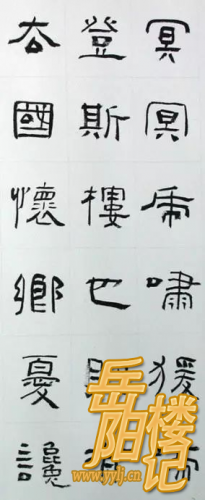 冥冥虎嘯猨
登斯樓也則
去國懷鄉憂讒
岳阳楼记
www.yylj.cn